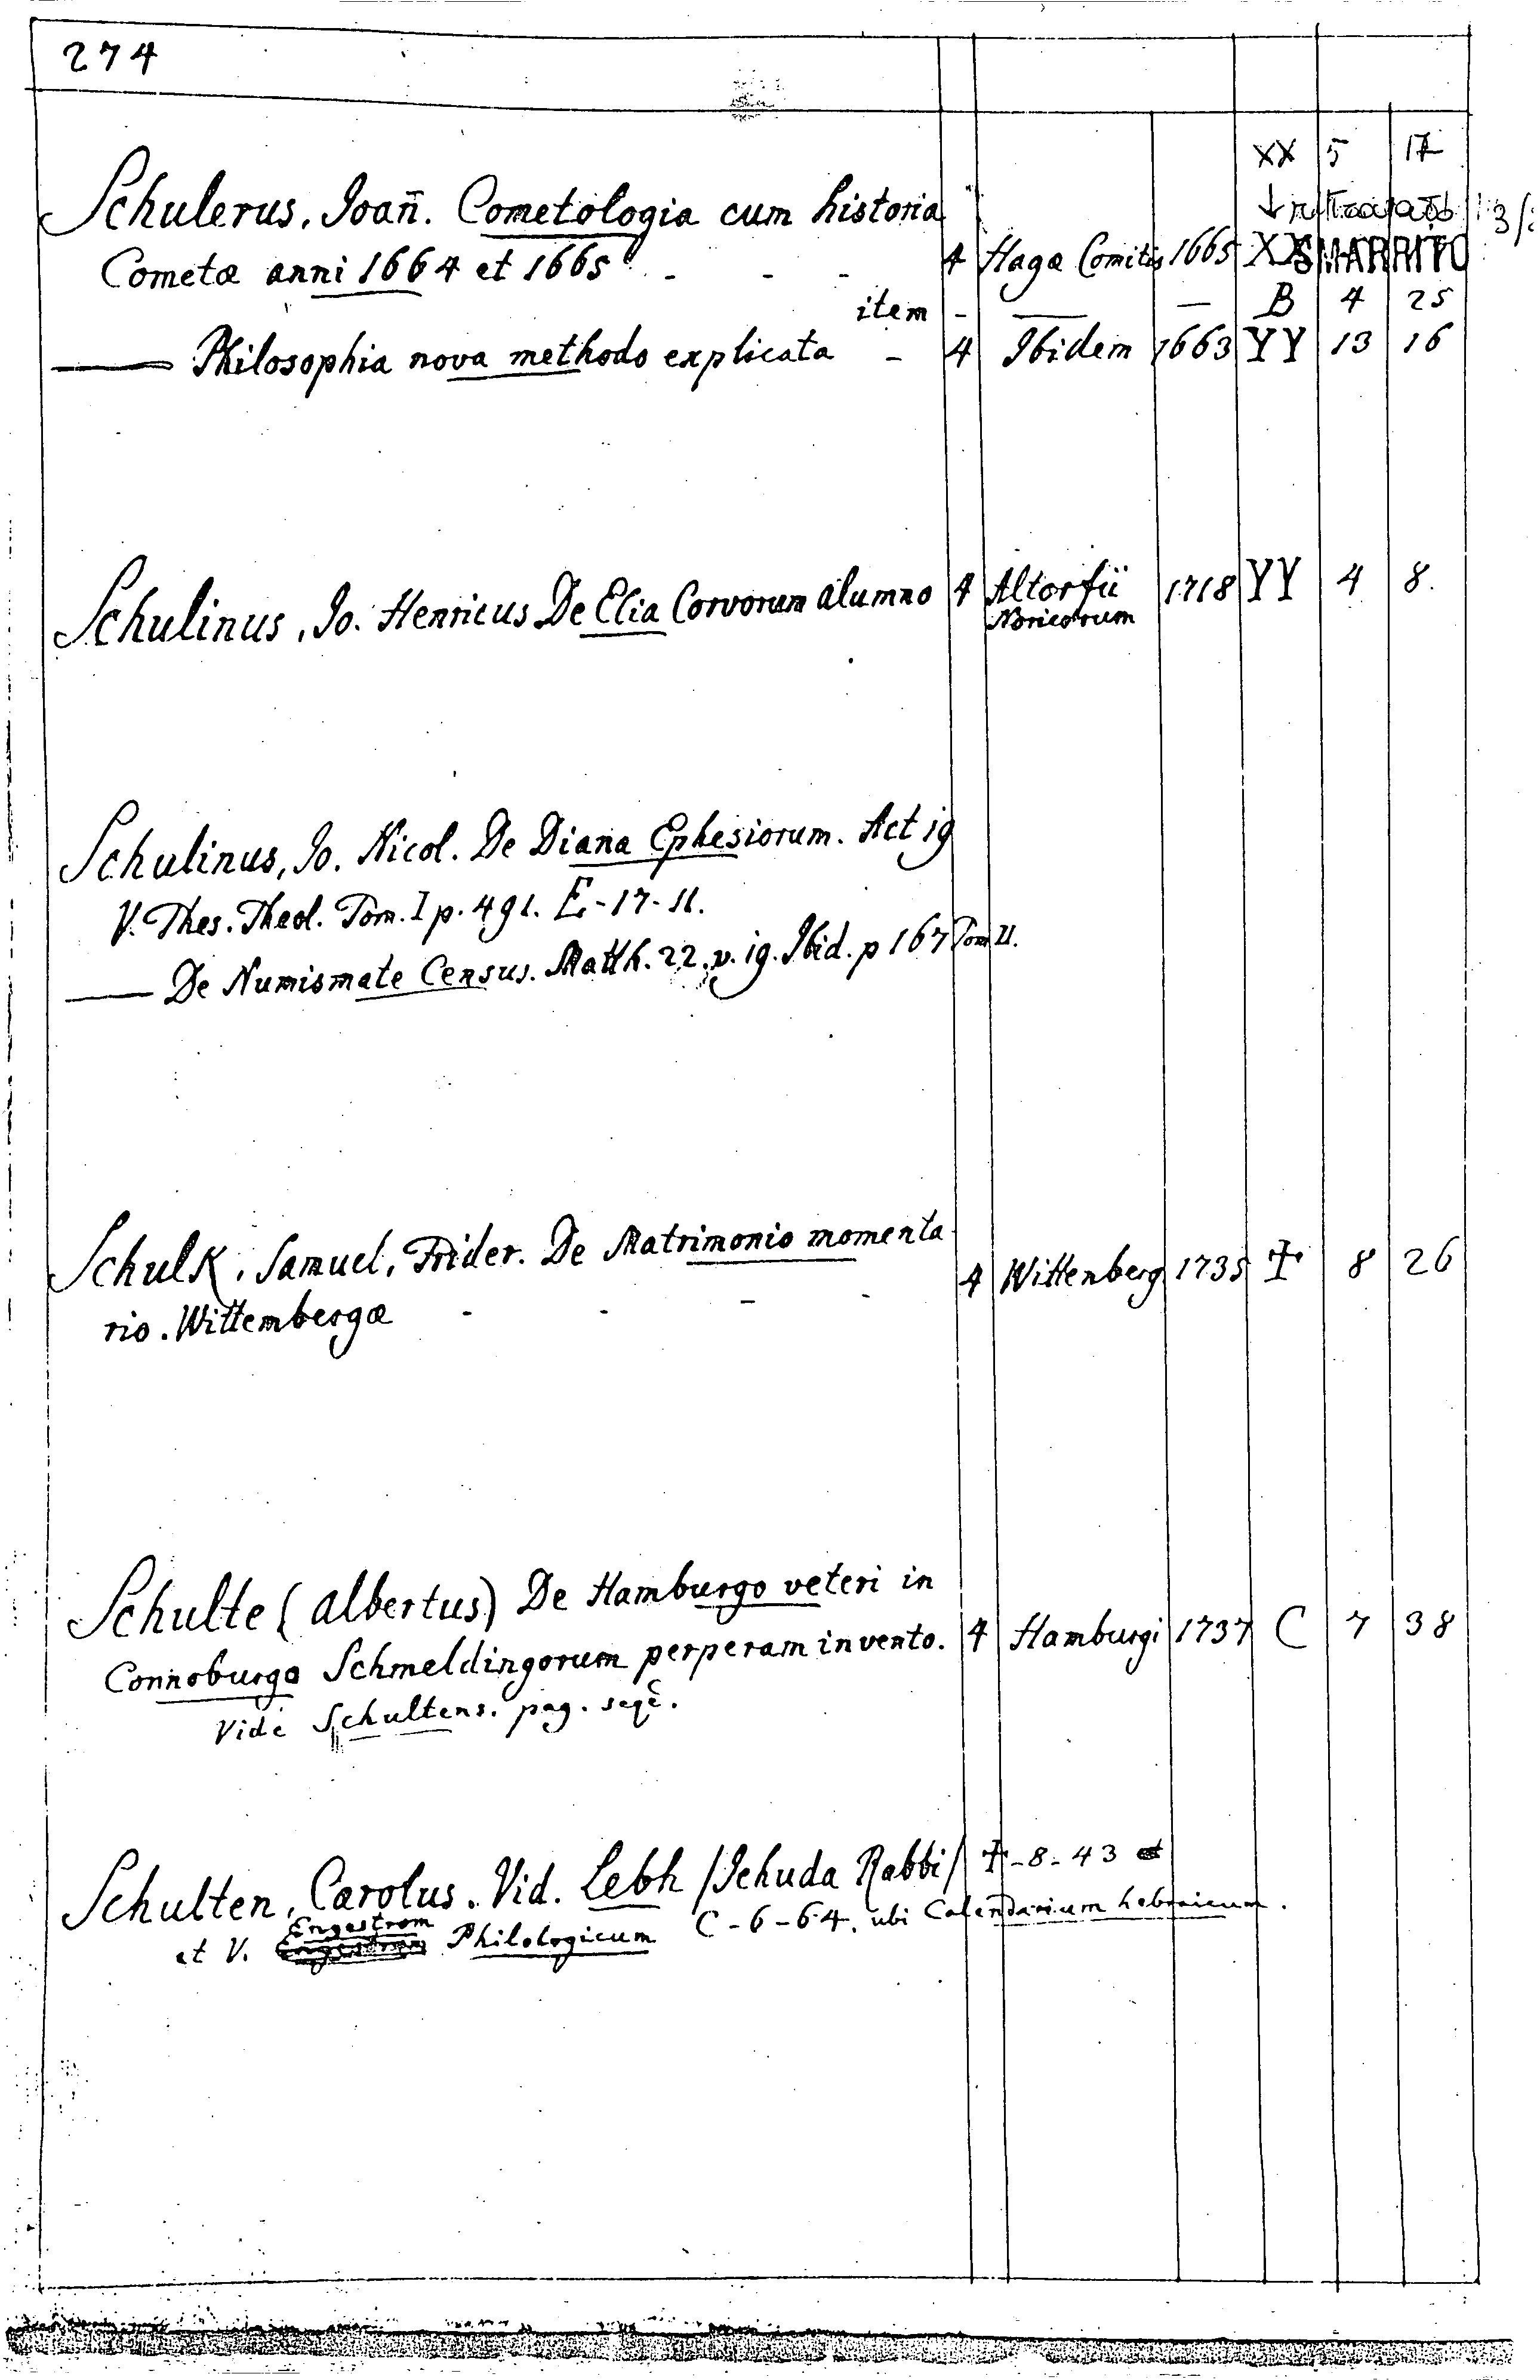 274
XX 5 17
Schulerus, Joan̄. Cometologia cum historia
Cometæ anni 1664 et 1665 - - - 4 Hagæ Comitis 1665 XX SMARRITO
item - — — B 4 25
— Philosophia nova methodo explicata - 4 Ibidem 1663 YY 13 16
Schulinus, Jo. Henricus De Elia Corvorum alumno 4 Altorfii 1718 YY 4 8.
Noricorum
Schulinus, Jo. Nicol. De Diana Ephesiorum. Act 19
V. Thes. Theol. Tom. I p. 491. E-17-11.
— De Numismate Census. Matth. 22. v. 19. Ibid. p 167 Tom II.
Schulk, Samuel, Frider. De Matrimonio momenta
rio. Wittembergæ - - - - 4 Wittenberg 1735 ☩ 8 26
Schulte (Albertus) De Hamburgo veteri in
Connoburgo Schmeldingorum perperam invento. 4 Hamburgi 1737 C 7 38
Vide Schultens. pag. seqē.
Schulten, Carolus. Vid. Lebh /Jehuda Rabbi/ ☩-8-43 et
et V. Engestrom Philologicum C-6-64. ubi Calendarium hebraicum.